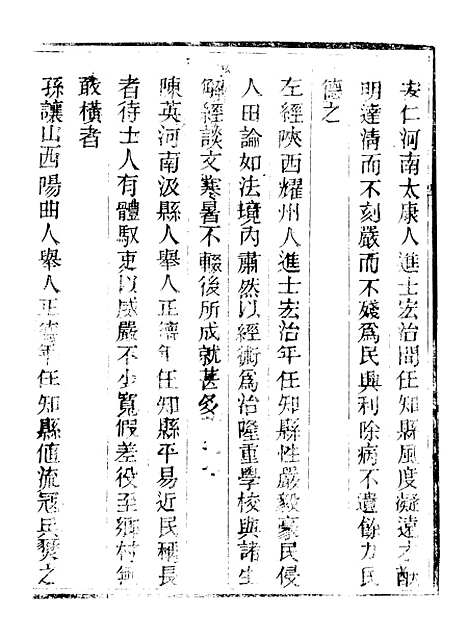 安仁河南太康人進士宏治間任知縣風度凝遠才猷
明達清而不刻嚴而不殘爲民興利除病不遺餘力民
德之
左經陝西耀州人進士宏治年任知縣性嚴毅豪民侵
人田論如法境內肅然以經術爲治隆重學校與諸生
解經談文寒暑不輟後所成就甚多
陳英河南汲縣人舉人正德年任知縣平易近民稱長
者待士人有體馭吏以威嚴不少寬假差役至鄉村無
敢橫者
孫讓山西陽曲人舉人正德年任知縣値流寇兵燹之